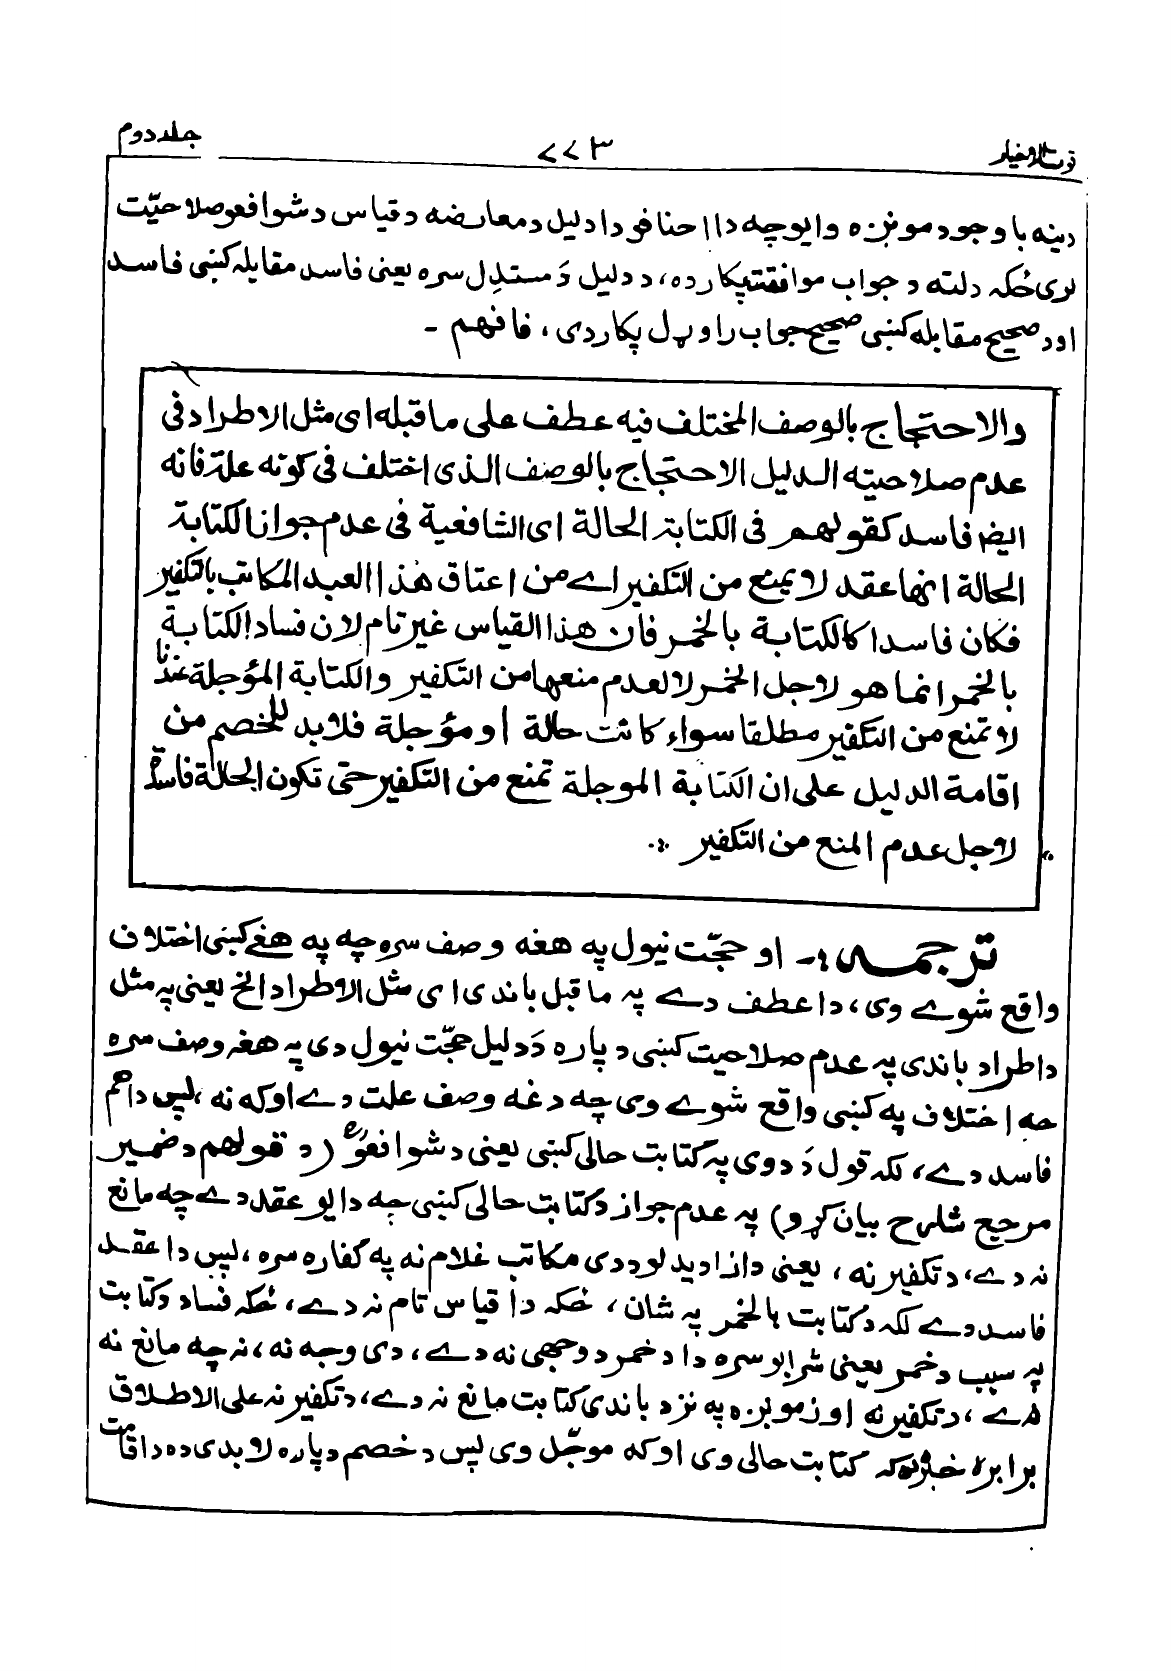 جلد دوم
۷۷۳
قوت الاخیار
دینه باوجود مونږه وایو چه دا احنافو دا دلیل د معارضه د قیاس د شوافعو صلاحیّت
لری ځکه دلته د جواب موافقت پکار ده، د دلیل دَ مستدِل سره یعنی فاسد مقابله کښی فاسد
او د صحیح مقابله کښی صحیح جواب راوړل پکار دی، فافهم -
والاحتجاج بالوصف المختلف فیه عطف علی ما قبله ای مثل الاطراد فی
عدم صلاحیته الدلیل الاحتجاج بالوصف الذی اختلف فی کونه علة فانه
ایضا فاسد کقولهم فی الکتابة الحالة ای الشافعیة فی عدم جواز الکتابة
الحالة انها عقد لا یمنع من التکفیر اے من اعتاق هٰذا العبد المکاتب بالتکفیر
فکان فاسدا کالکتابة بالخمر فان هٰذا القیاس غیر تام لان فساد الکتابة
بالخمر انما هو لاجل الخمر لا لعدم منعها من التکفیر والکتابة المؤجلة عندنا
لا تمنع من التکفیر مطلقا سواء کانت حالة او مؤجلة فلا بد للخصم من
اقامة الدلیل علی ان الکتابة الموجلة تمنع من التکفیر حتی تکون الحالة فاسدة
لاجل عدم المنع من التکفیر ؞
ترجمه :- او حجّت نیول په هغه وصف سره چه په هغے کښی اختلاف
واقع شوے وی، دا عطف دے په ماقبل باندی ای مثل الاطراد الخ یعنی په مثل
د اطراد باندی په عدم صلاحیت کښی دپاره دَ دلیل حجّت نیول دی په هغه وصف سره
چه اختلاف په کښی واقع شوے وی چه دغه وصف علت دے او که نه، لپس دا هم
فاسد دے، لکه قول دَ دوی په کتابت حالی کښی یعنی د شوافعو (د قولهم د ضمیر
مرجع شارح بیان کړو) په عدم جواز د کتابت حالی کښی چه دا یو عقد دے چه مانع
نه دے، د تکفیر نه، یعنی د ازادیدلو ددی مکاتب غلام نه په کفاره سره، لپس دا عقد
فاسد دے لکه د کتابت بالخمر په شان، ځکه دا قیاس تام نه دے، ځکه فساد د کتابت
په سبب د خمر یعنی شرابو سره دا د خمر د وجهی نه دے، دی وجه نه، نه چه مانع نه
دے، د تکفیر نه او زمونږه په نزد باندی کتابت مانع نه دے، د تکفیر نه علی الاطلاق
برابره خبره ده که کتابت حالی وی او که موجّل وی لپس د خصم دپاره لابدی ده د اقامت